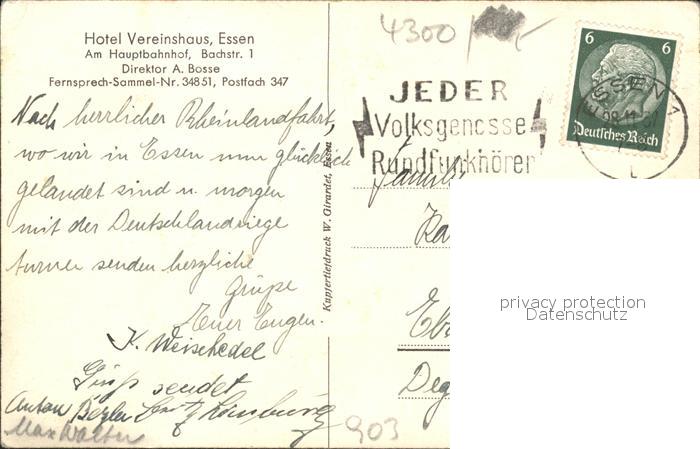 Hotel Vereinshaus, Essen
Am Hauptbahnhof, Bachstr. 1
Direktor A. Bosse
Fernsprech-Sammel-Nr. 34851, Postfach 347
Nach herrlicher Rheinlandfahrt,
wo wir in Essen nun glücklich
gelandet sind u. morgen
mit der Deutschlandriege
turnen senden herzliche
Grüße
Euer Eugen.
K. Weischedel
Gruß sendet
Anton
Max Walter
Kupfertiefdruck W. Girardet, Essen
4300
JEDER
Volksgenosse
Rundfunkhörer
6 6
Deutsches Reich
ESSEN 1
Familie
Ka
Ebe
Deg
903
privacy protection
Datenschutz